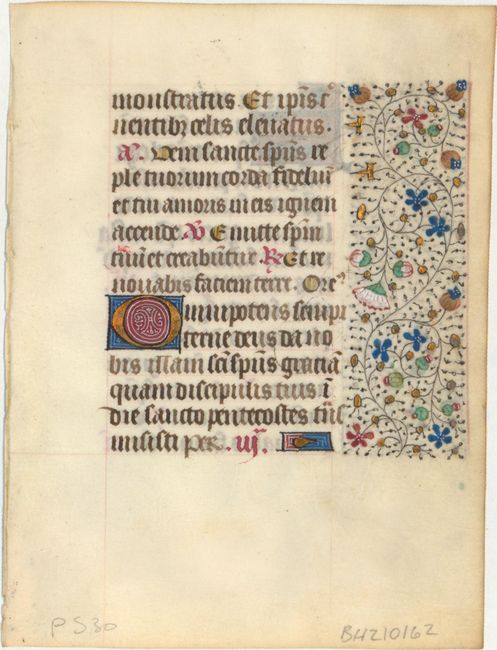 monstratus. Et ip̄is c̄
nentibꝫ celis eleuatus.
A᷍. Veni sancte sp̄us re
ple tuorum corda fideliū
et tui amoris in eis ignem
accende. V᷍ Emitte sp̄m
tuū et creabūtur. R᷍ Et re
nouabis faciem terre. Ore
Omnipotens sempi
terne deus da no
bis illam sc̄i sp̄us graciā
quam discipulis tuis ī
die sancto pentecostes tūs
misisti per. iij.
P S30
BH210162